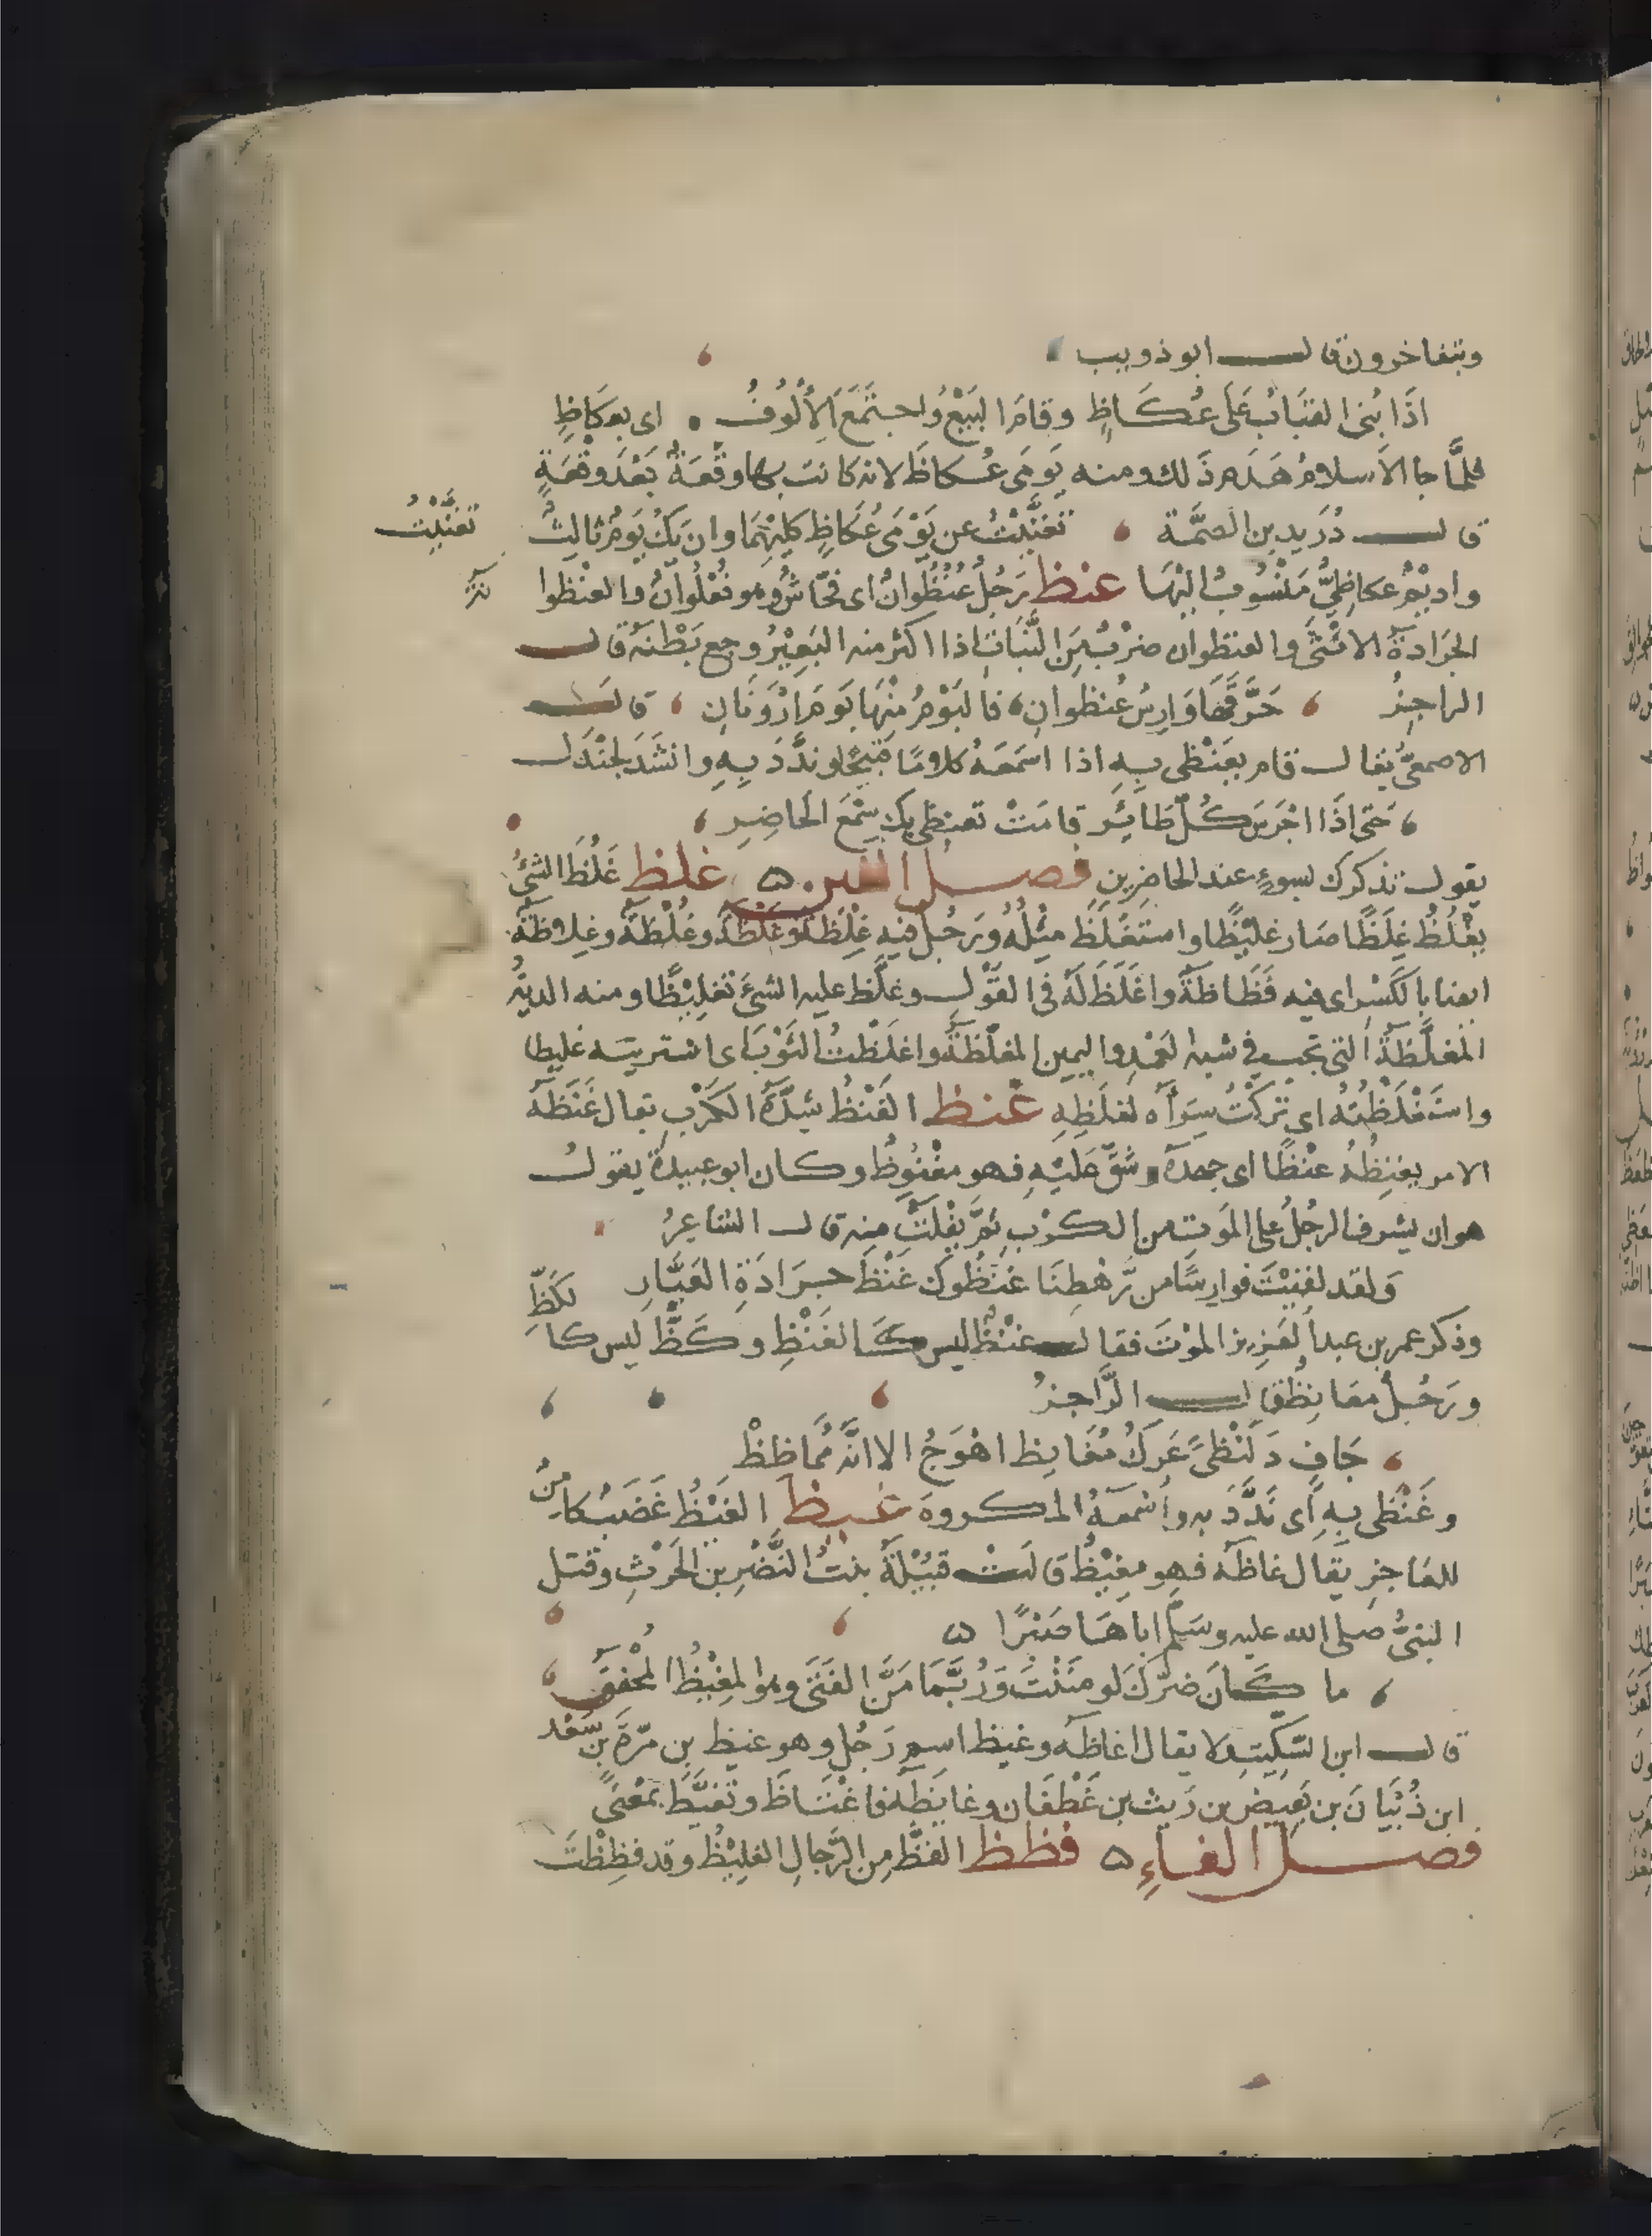 ويتفاخرون قال ابو ذويب
اذَا بُنى القبَابُ عَلَى عُكَاظٍ وقامَ البَيْعُ وَاجتَمَعَ الأُلُوفُ . اى بعكاظٍ
فلمَّا جا الاسلامُ هَدَم ذَلك ومنه يَومَى عُكاظَ لانه كانت بها وقْعَةٌ بَعْدَ وقْعَةٍ
قال دُرَيد بن الصمَّة تغيَّبْتُ عن يَوْمَى عُكَاظٍ كليْهِمَا وان يَكُ يَومٌ ثالثٌ
تغيَّبْتُ
واديمٌ عكاظِيٌّ مَنْسُوبٌ اليْهَا عنظ رَجُلٌ عُنْظُوَانٌ اى فحّاشٌ وهو فُعْلُوَانٌ والعنْظوا
الجَرَادةُ الانْثَى والعنظوان ضرْبٌ مِنَ النَّبَاتِ اذا اكثر منه البَعِيْرُ وجع بَطْنهُ قال
الراجِزُ حَرَّقَهَا وَارِسُ عُنظوانِ فاليَوْمُ مِنْهَا يَومَ ارْوَنَانِ قال
الاصمعىُّ يقال قام يعَنْظى بِهِ اذا اسْمَعَهُ كلامًا قبيحًا وندَّدَ بِهِ وانشَدَ لجنْدَل
حَتى اذَا اجْرَسَ كُلُّ طَائِرٍ قامَتْ تعنظى بك سِمْعَ الحَاضِرِ
يقول تذكرك بسوءٍ عند الحاضِرِين فصل الغين غلظ غَلُظَ الشىُ
يَغْلُظُ غِلَظًا صَار غليْظًا واستَغْلَظَ مِثْلُهُ ورَجُلٌ فيهِ غِلْظَةٌ وغَلْظَةٌ وغُلْظَةٌ وغِلاظَةٌ
ايضا بالكَسْرِ اى فيه فَظَاظَةٌ واغْلَظَ لَهُ فى القَوْلِ وغلَّظ عليه الشىَ تغلِيْظًا ومنه الديَةُ
المغَلَّظَةُ التى تجب فى شبه العَمْدِ واليمين المغلّظَةُ واغلَظْتُ الثَوْبَ اى اشتريته غليظا
واستَغْلَظْتُهُ اى تَرَكْتُ شِرَآه لغلَظِهِ غنظ الغَنْظُ شِدَّةُ الكَرْبِ يقال غَنَظَهُ
الامر يغنِظُهُ غنْظًا اى جهدَهُ وشَقَّ عَليْهِ فهو مغْنُوظٌ وكان ابو عبيدةَ يقولُ
هو ان يشرف الرجُلُ على المَوتِ من الكرْبِ ثمَّ يفْلتُ منه قال الشاعِرُ
وَلقد لقيْتَ فوارِسًا من رَّهْطِنَا غنَظُوكَ غَنْظَ جرَادَةِ العَيَّارِ
وذكر عمر بن عبد العَزِيز المَوْتَ فقال غنْظٌ ليس كَالغَنْظِ وكَظٌّ ليس كا لكَظِّ
ورَجُلٌ مغَانِظٌ قال الرَّاجِزُ
جَافٍ دَلَنْظىً عَرِكٌ مُغَانِظ اهْوَجُ الا انَّهُ مُمَاظِظْ
وغَنْظى بِهِ اَى نَدَّدَ به وأسْمعَهُ المكروهَ غيظ الغَيْظُ غَضَبٌ كامِنٌ
للعَاجِزِ يقَال غاظَه فهو مغِيْظٌ قالَتْ قُتَيْلَةُ بنتُ النَّضْرِ بن الحَرْثِ وقتل
النبىُّ صلى الله عليه وسَلَّم اباهَا صَبْرًا
ما كَانَ ضرّكَ لَو مَنَنْتَ وَرُبَّمَا مَنَّ الفَتَى وهوا لمغِيْظُ المُحْنقُ
قال ابن السّكِيتِ ولا يقال اغاظَه وغيظ اسم رَجُلٍ وهو غيظ بن مرّةَ بن سَعْد
ابن ذُبْيَانَ بن بَغِيضِ بن رَيث بن غَطْفَان وغايَظَهُ فاغْتَاظَ وتغَيَّظَ بمَعْنىً
فصل الفاءِ فظظ الفَظُّ مِن الرِّجالِ الغليْظُ وقد فظِظْتَ